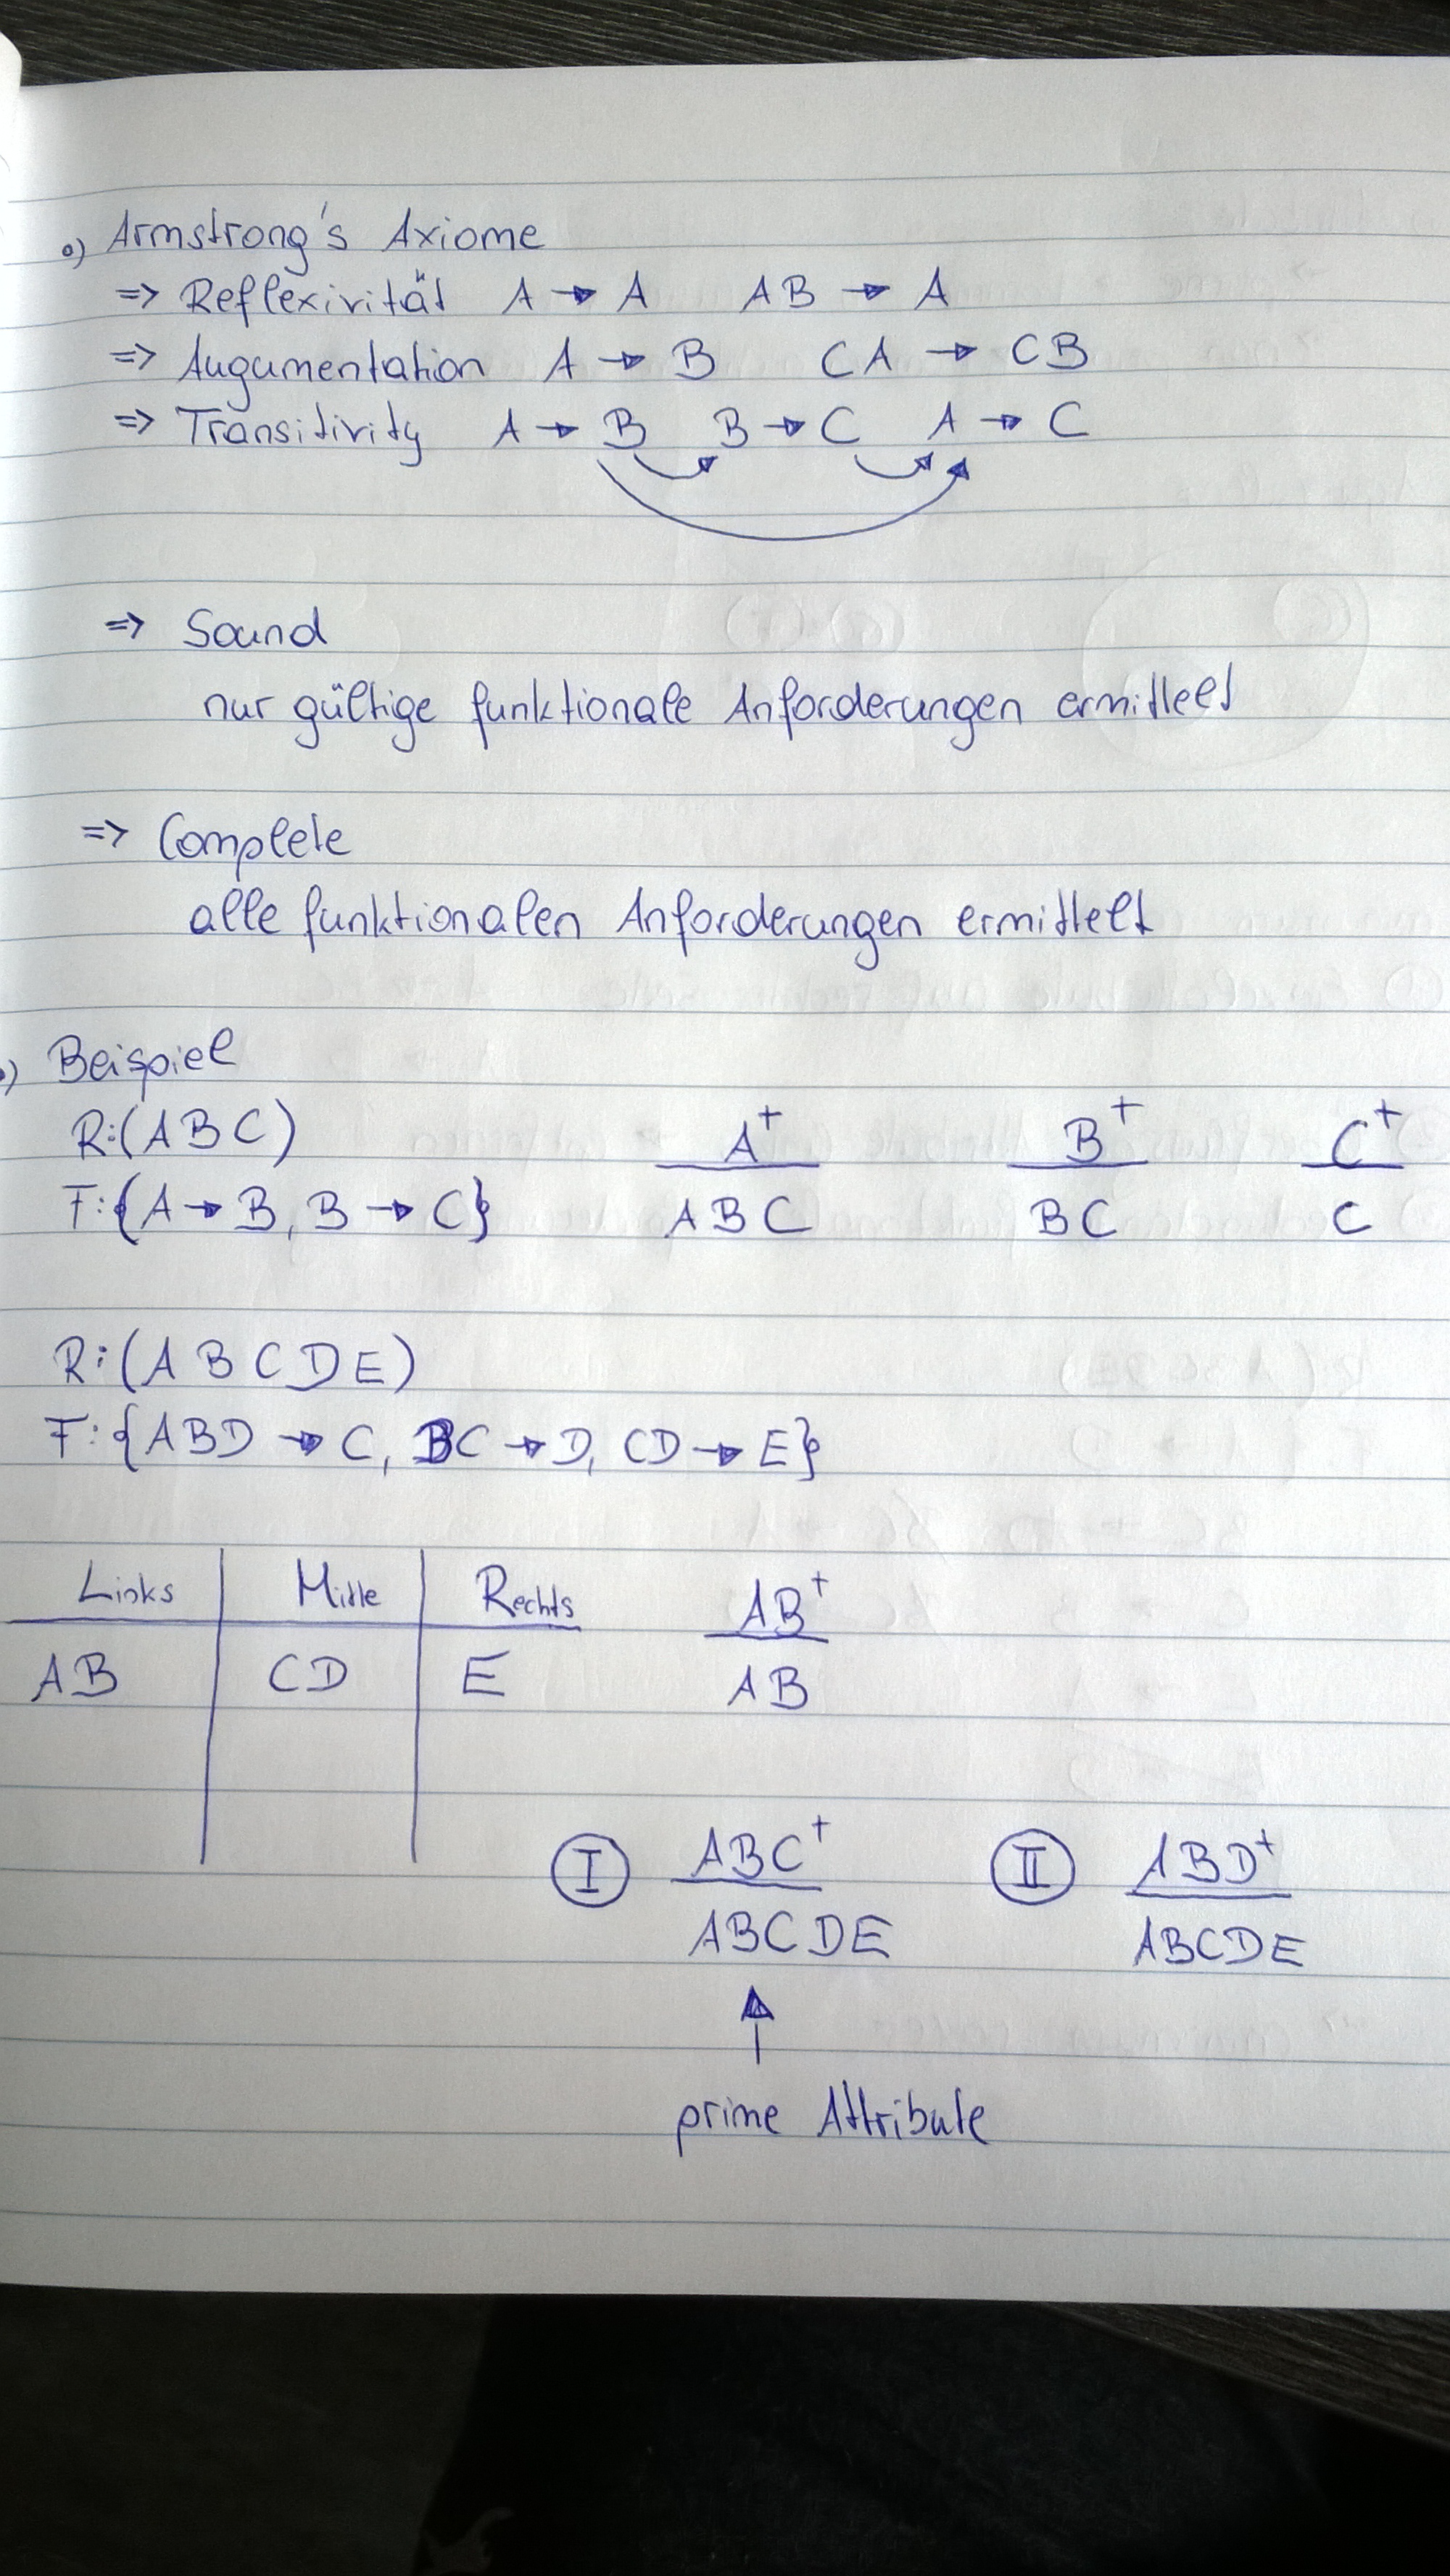 o) Armstrong's Axiome
=> Reflexivität A → A AB → A
=> Augumentation A → B CA → CB
=> Transitivity A → B B → C A → C
=> Sound
nur gültige funktionale Anforderungen ermittelt
=> Complete
alle funktionalen Anforderungen ermittelt
o) Beispiel
R:(ABC) A⁺ B⁺ C⁺
F:{A → B, B → C} ABC BC C
R:(ABCDE)
F:{ABD → C, BC → D, CD → E}
Links Mitte Rechts AB⁺
AB CD E AB
I ABC⁺ II ABD⁺
ABCDE ABCDE
prime Attribute